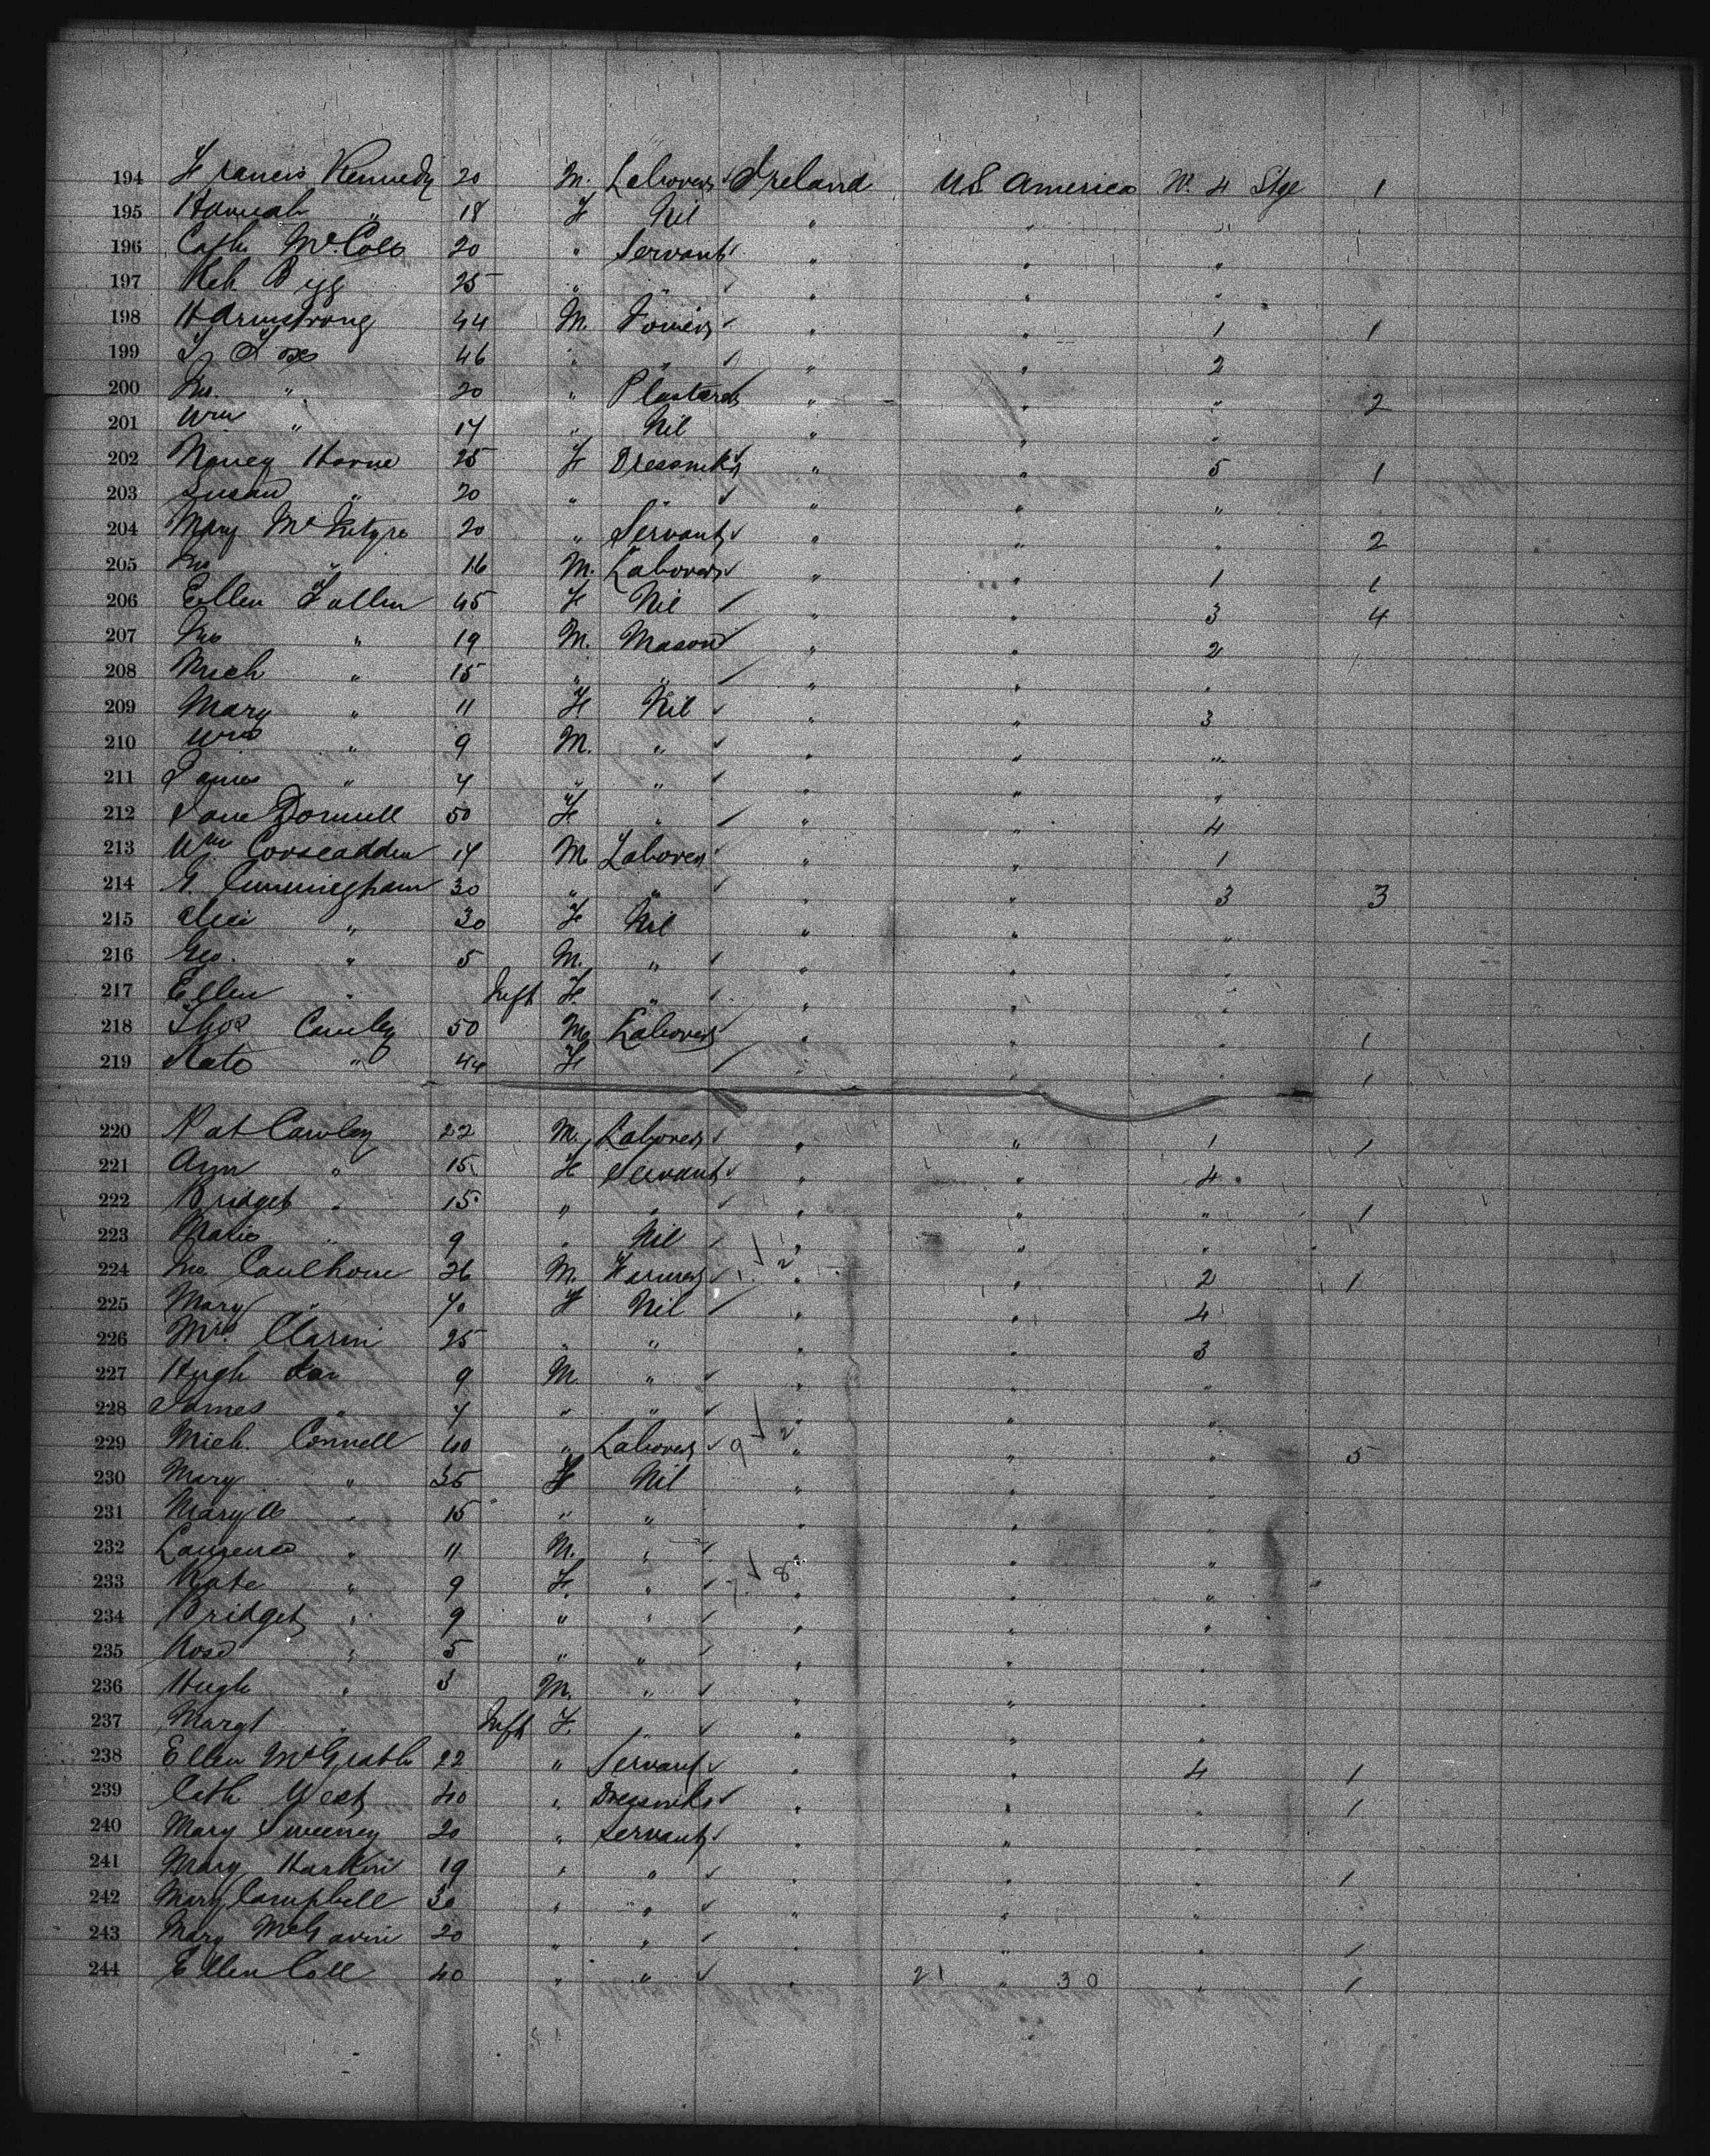 194 Francis Kennedy 20 M. Laborer Ireland US America No. 4 Stge 1
195 Hannah " 18 F Nil " " "
196 Cath Mc.Cole 20 " Servant " " "
197 25 " " " " "
198 H Armstrong 44 M. " " 1 1
199 Fox 46 " " " " 2
200 Jno. " 20 " Plasterer " " " 2
201 Wm " 17 " Nil " " "
202 Nancy Horne 25 F Dressmkr " " 5 1
203 Susan " 20 " " " " "
204 Mary McIntyre 20 " Servant " " " 2
205 Jno " 16 M. Laborer " " 1 1
206 Ellen Fallen 45 F Nil " " 3 4
207 Jno " 19 M. Mason " " 2
208 Mich " 15 " " " " "
209 Mary " 11 F Nil " " 3
210 Wm " 9 M. " " " "
211 James " 7 " " " " "
212 Jane Donnell 50 F " " " 4
213 Wm Corscadden 17 M. Laborer " " 1
214 G. Cunningham 30 " " " " 3 3
215 " 30 F Nil " " "
216 Geo. " 5 M. " " " "
217 Ellen " Inft F. " " " "
218 Thos Cawley 50 M. Laborer " " " 1
219 Kate " 44 F " " " 1
220 Pat Cawley 22 M. Laborer " " 1 1
221 Ann " 15 F Servant " " 4
222 Bridget " 15 " " " " " 1
223 " 9 " Nil " " "
224 Jno Caulhoun 26 M. Farmer " " 2 1
225 Mary " 70 F Nil " " 4
226 Mrs. 25 " " " " 3
227 Hugh 9 M. " " " "
228 James " 7 " " " " "
229 Mich. Connell 40 " Laborer " " " 5
230 Mary " 35 F Nil " " "
231 Mary A " 15 " " " " "
232 Laurence " 11 M. " " " "
233 Kate " 9 F. " " " "
234 Bridget " 9 " " " " "
235 Rose " 5 " " " " "
236 Hugh " 3 M. " " " "
237 Margt " Inft F. " " " "
238 Ellen McGrath 22 " Servant " " 4 1
239 Cath West 40 " Dressmkr " " " 1
240 Mary Sweeney 20 " Servant " " "
241 Mary Harkin 19 " " " " " 1
242 Mary Campbell 30 " " " " "
243 Mary McGavin 20 " " " " " 1
244 Ellen Coll 40 " " " 21 " 30 " 1